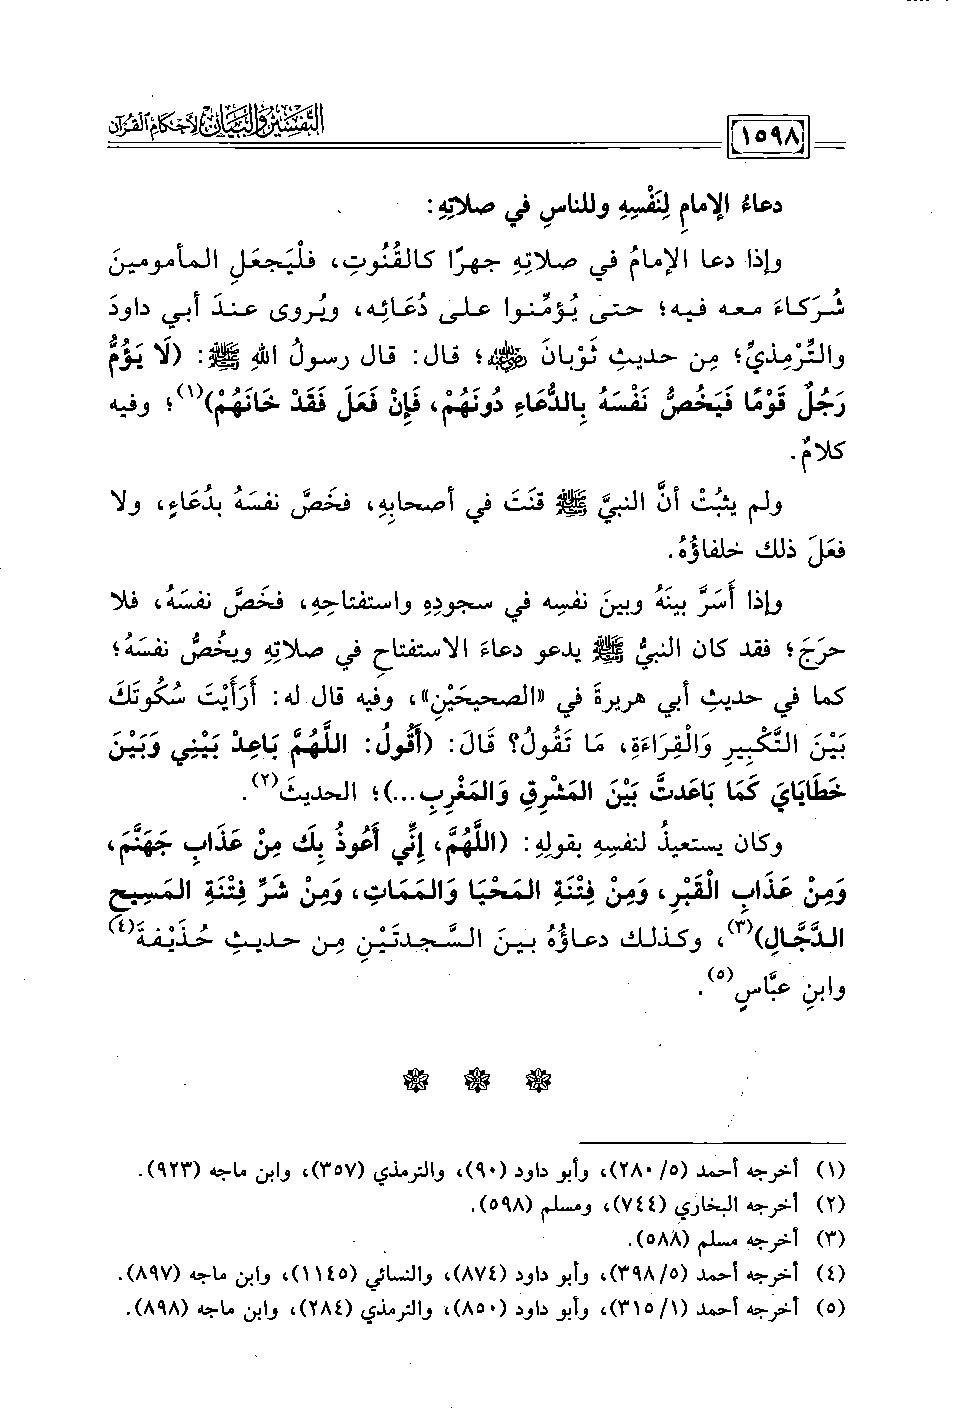 التفسير والبيان لأحكام القرآن
١٥٩٨
دعاءُ الإمامِ لِنَفْسِهِ وللناسِ في صلاتِهِ:
وإذا دعا الإمامُ في صلاتِهِ جهرًا كالقُنُوتِ، فلْيَجعَلِ المأمومينَ
شُرَكاءَ معه فيه؛ حتى يُؤمِّنوا على دُعَائِه، ويُروى عندَ أبي داودَ
والتِّرْمِذيِّ؛ مِن حديثِ ثَوْبانَ ﵁؛ قال: قال رسولُ اللهِ ﷺ: (لَا يَؤُمُّ
رَجُلٌ قَوْمًا فَيَخُصُّ نَفْسَهُ بِالدُّعَاءِ دُونَهُمْ، فَإِنْ فَعَلَ فَقَدْ خَانَهُمْ)(١)؛ وفيه
كلامٌ.
ولم يثبُتْ أنَّ النبيَّ ﷺ قنَتَ في أصحابِهِ، فخَصَّ نفسَهُ بدُعَاءٍ، ولا
فعَلَ ذلك خلفاؤُهُ.
وإذا أَسَرَّ بينَهُ وبينَ نفسِه في سجودِهِ واستفتاحِهِ، فخَصَّ نفسَهُ، فلا
حرَجَ؛ فقد كان النبيُّ ﷺ يدعو دعاءَ الاستفتاحِ في صلاتِهِ ويخُصُّ نفسَهُ؛
كما في حديثِ أبي هريرةَ في «الصحيحَيْنِ»، وفيه قال له: أَرَأَيْتَ سُكُوتَكَ
بَيْنَ التَّكْبِيرِ وَالْقِرَاءَةِ، مَا تَقُولُ؟ قَالَ: (أَقُولُ: اللَّهُمَّ بَاعِدْ بَيْنِي وَبَيْنَ
خَطَايَايَ كَمَا بَاعَدتَّ بَيْنَ المَشْرِقِ وَالمَغْرِبِ...)؛ الحديثَ(٢).
وكان يستعيذُ لنفسِهِ بقولِهِ: (اللَّهُمَّ، إِنِّي أَعُوذُ بِكَ مِنْ عَذَابِ جَهَنَّمَ،
وَمِنْ عَذَابِ الْقَبْرِ، وَمِنْ فِتْنَةِ المَحْيَا وَالمَمَاتِ، وَمِنْ شَرِّ فِتْنَةِ المَسِيحِ
الدَّجَّالِ)(٣)، وكذلك دعاؤُهُ بينَ السَّجدتَيْنِ مِن حديثِ حُذَيْفةَ(٤)
وابنِ عبَّاسٍ(٥).
(١) أخرجه أحمد (٥/ ٢٨٠)، وأبو داود (٩٠)، والترمذي (٣٥٧)، وابن ماجه (٩٢٣).
(٢) أخرجه البخاري (٧٤٤)، ومسلم (٥٩٨).
(٣) أخرجه مسلم (٥٨٨).
(٤) أخرجه أحمد (٥/ ٣٩٨)، وأبو داود (٨٧٤)، والنسائي (١١٤٥)، وابن ماجه (٨٩٧).
(٥) أخرجه أحمد (١/ ٣١٥)، وأبو داود (٨٥٠)، والترمذي (٢٨٤)، وابن ماجه (٨٩٨).